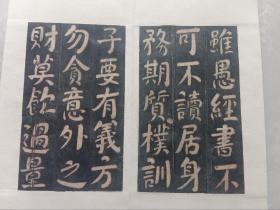 雖愚經書不
可不讀居身
務期質樸訓
子要有義方
勿貪意外之
財莫飲過量